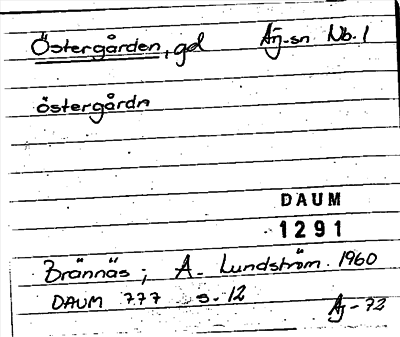 Östergården, gd Aj-sn Nb. 1
östergårdn
DAUM
1291
Brännäs; A. Lundström. 1960
DAUM 777 s. 12
Aj-72